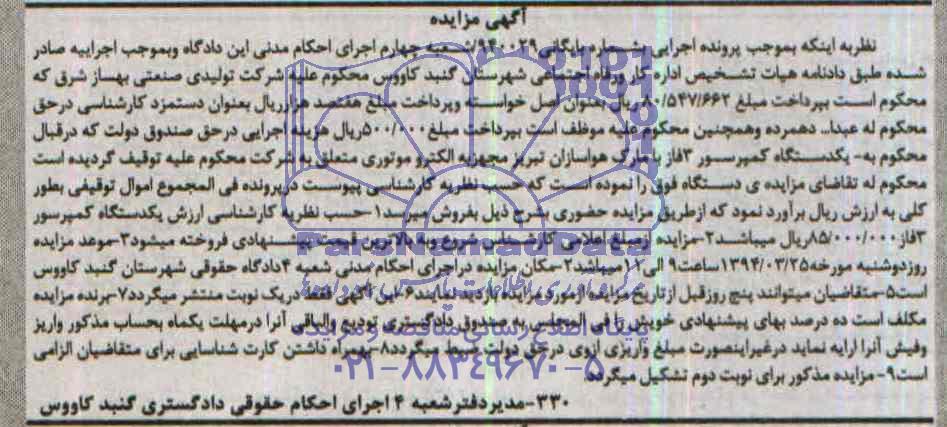 آگهی مزایده
نظربه اینکه بموجب پرونده اجرایی بشماره بایگانی ۹۴۰۰۲۹/شعبه چهارم اجرای احکام مدنی این دادگاه وبموجب اجراییه صادر
شده طبق دادنامه هیات تشخیص اداره کار ورفاه اجتماعی شهرستان گنبد کاووس محکوم علیه شرکت تولیدی صنعتی بهساز شرق که
محکوم است بپرداخت مبلغ ۸۰/۵۴۷/۶۶۲ ریال بعنوان اصل خواسته وپرداخت مبلغ هفتصد هزارریال بعنوان دستمزد کارشناسی درحق
محکوم له عبدا... دهمرده وهمچنین محکوم علیه موظف است بپرداخت مبلغ ۵۰۰/۰۰۰ریال هزینه اجرایی درحق صندوق دولت که درقبال
محکوم به- یکدستگاه کمپرسور ۳فاز با مارک هواسازان تبریز مجهزبه الکترو موتوری متعلق به شرکت محکوم علیه توقیف گردیده است
محکوم له تقاضای مزایده ی دستگاه فوق را نموده است که حسب نظریه کارشناسی پیوست درپرونده فی المجموع اموال توقیفی بطور
کلی به ارزش ریال برآورد نمود که ازطریق مزایده حضوری بشرح ذیل بفروش میرسد۱-حسب نظریه کارشناسی ارزش یکدستگاه کمپرسور
۳فاز ۸۵/۰۰۰/۰۰۰ریال میباشد۲-مزایده ازمبلغ اعلامی کارشناس شروع وبه بالاترین قیمت پیشنهادی فروخته میشود۳-موعد مزایده
روزدوشنبه مورخه۱۳۹۴/۰۳/۲۵ساعت۹ الی میباشد۲-مکان مزایده دراجرای احکام مدنی شعبه ۴دادگاه حقوقی شهرستان گنبد کاووس
است۵-متقاضیان میتوانند پنج روزقبل ازتاریخ مزایده ازموردمزایده بازدید نمایند۶-این آگهی فقط دریک نوبت منتشر میگردد۷-برنده مزایده
مکلف است ده درصد بهای پیشنهادی خویش را فی المجلس به صندوق دادگستری تودیع والباقی آنرا درمهلت یکماه بحساب مذکور واریز
وفیش آنرا ارایه نماید درغیراینصورت مبلغ واریزی ازوی درحق دولت ضبط میگردد۸-بهمراه داشتن کارت شناسایی برای متقاضیان الزامی
است۹- مزایده مذکور برای نوبت دوم تشکیل میگردد.
۳۳۰-مدیردفترشعبه ۴ اجرای احکام حقوقی دادگستری گنبد کاووس
ParsNamadData
پایگاه اطلاع رسانی مناقصه و مزایده
۰۲۱-۸۸۳۴۹۶۷۰-۵